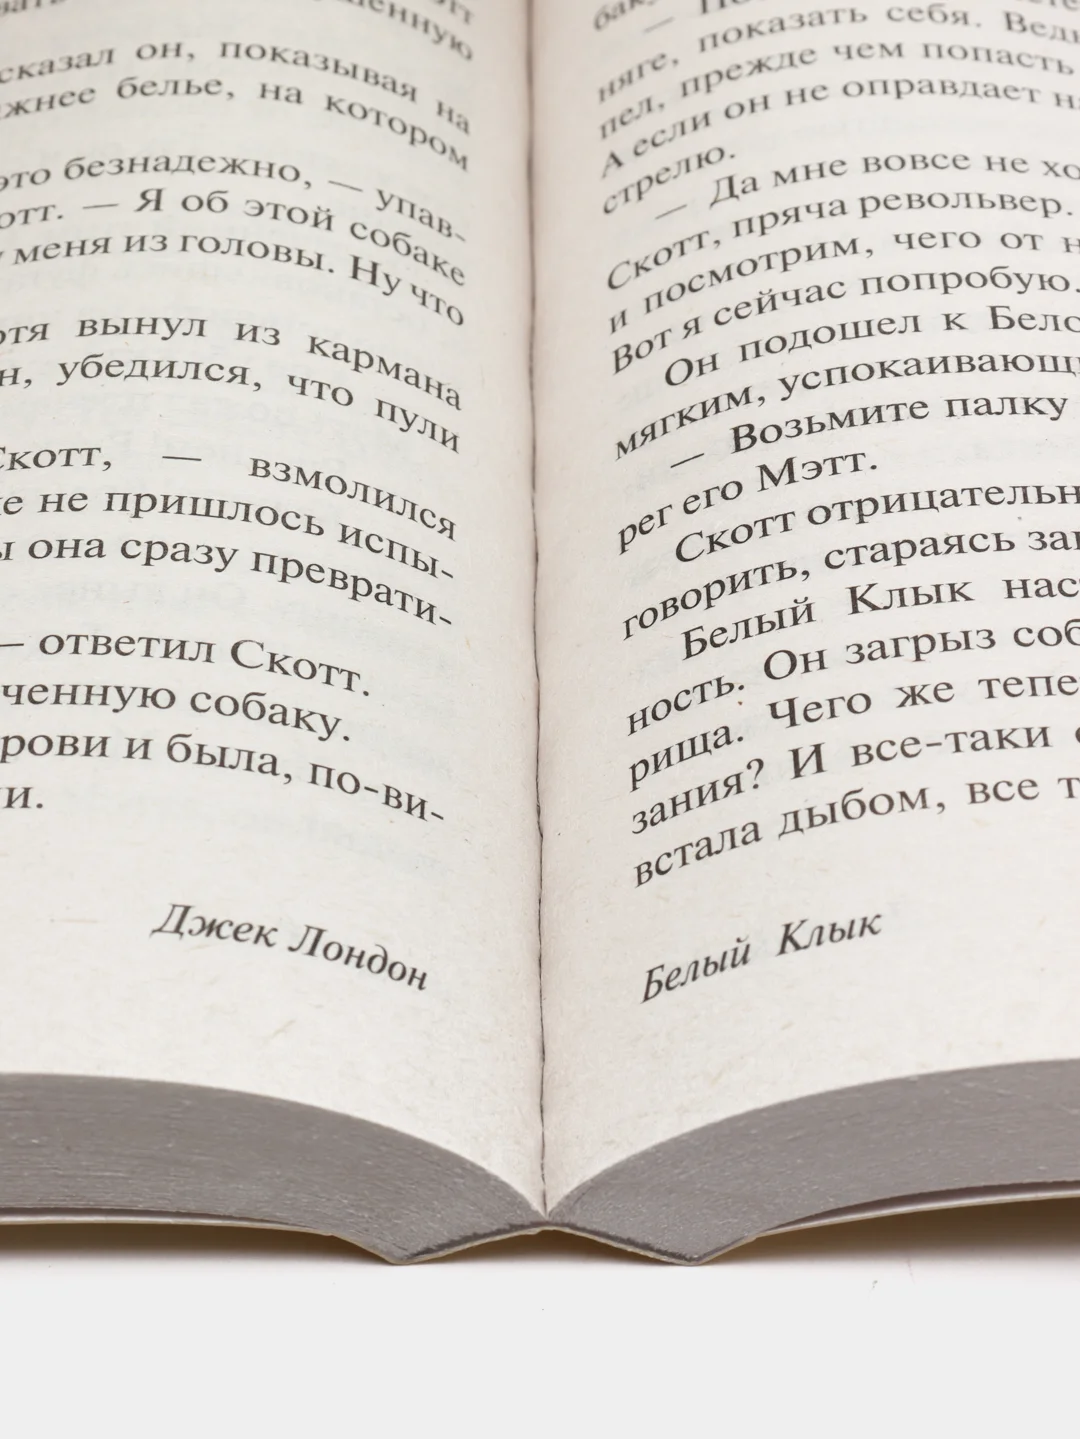 сказал он, показывая на
белье, на котором
это безнадежно, — упав-
— Я об этой собаке
у меня из головы. Ну что
вынул из кармана
убедился, что пули
Скотт, — взмолился
не пришлось испы-
она сразу преврати-
— ответил Скотт.
ченную собаку.
рови и была, по-ви-
Джек Лондон
няге, показать себя. Ведь
пел, прежде чем попасть
А если он не оправдает
стрелю.
— Да мне вовсе не хо
Скотт, пряча револьвер.
и посмотрим, чего от н
Вот я сейчас попробую.
Он подошел к Бело
мягким, успокаивающи
— Возьмите палку
рег его Мэтт.
Скотт отрицательн
говорить, стараясь за
Белый Клык нас
ность. Он загрыз соб
рища. Чего же тепе
зания? И все-таки
встала дыбом, все т
Белый Клык